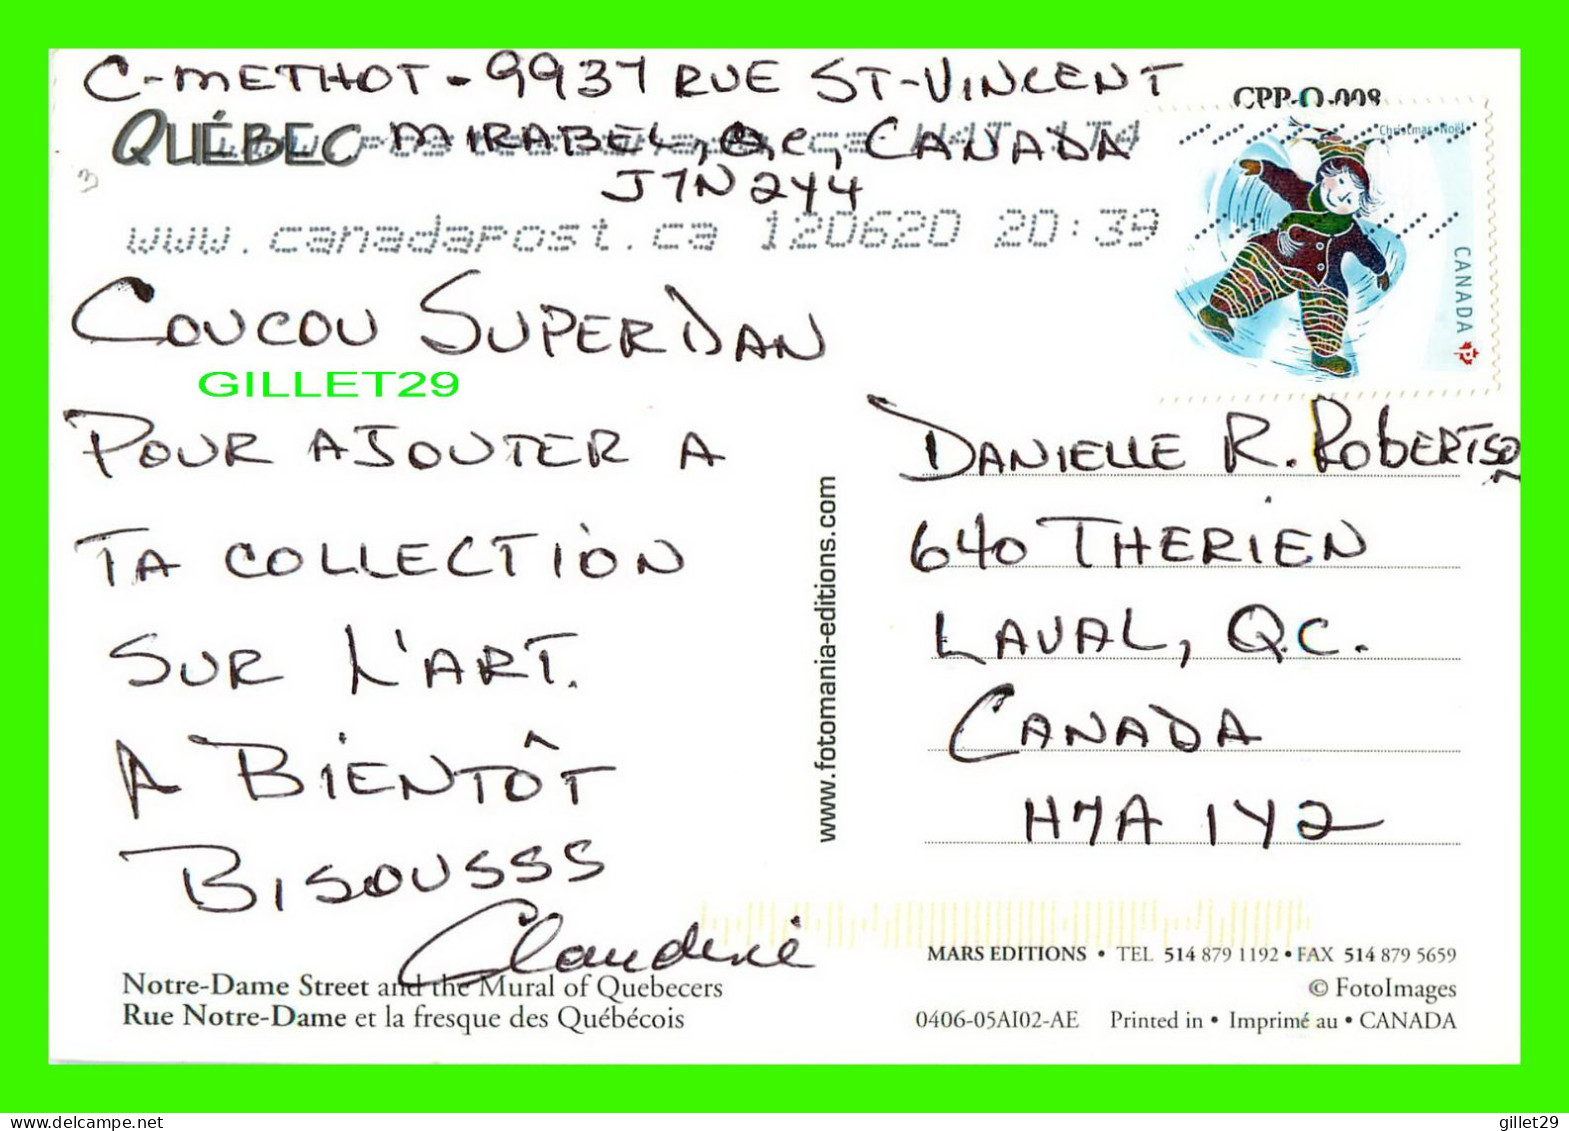 C-METHOT - 9937 RUE ST-VINCENT
CPP-Q-008
QUÉBEC MIRABEL, Q.C., CANADA
J7N 2Y4
Christmas • Noël
www.canadapost.ca 120620 20:39
CANADA
P
COUCOU SUPERDAN
GILLET29
POUR AJOUTER A
TA COLLECTION
SUR L'ART.
A BIENTÔT
BISOUSSS
Claudine
DANIELLE R. ROBERTSON
640 THERIEN
LAVAL, QC.
CANADA
H7A 1Y2
www.fotomania-editions.com
Notre-Dame Street and the Mural of Quebecers
Rue Notre-Dame et la fresque des Québécois
MARS EDITIONS • TEL 514 879 1192 • FAX 514 879 5659
© FotoImages
0406-05AI02-AE Printed in • Imprimé au • CANADA
gillet29